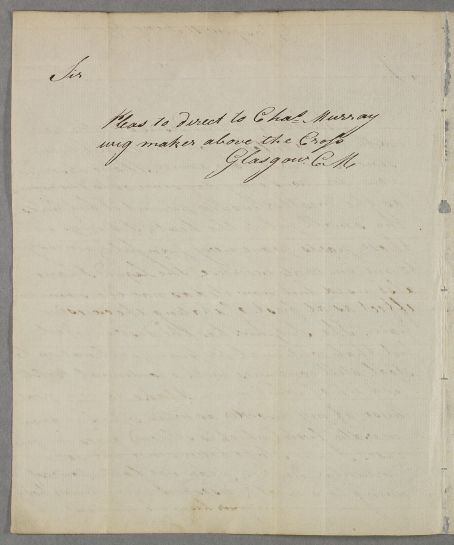 Sir
Pleas to direct to Chas. Murray
wig maker above the Cross
Glasgow. C. M.